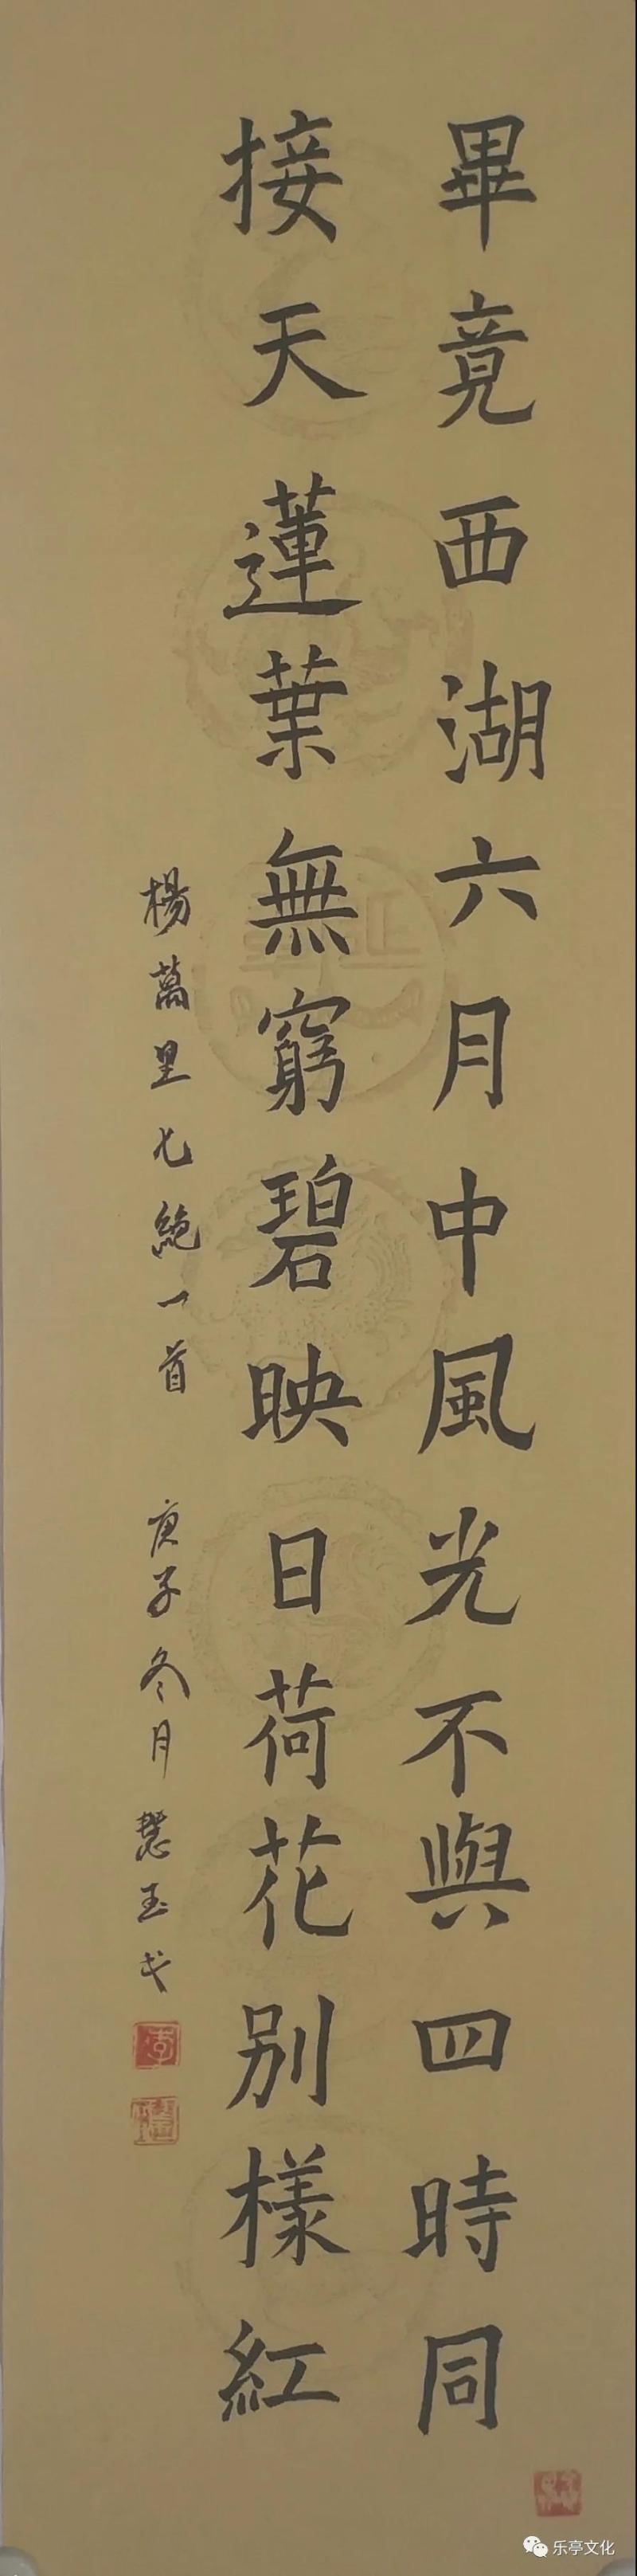 畢竟西湖六月中風光不與四時同
接天蓮葉無窮碧映日荷花别樣紅
楊萬里七絶一首 庚子冬月慧玉弋
李
乐亭文化